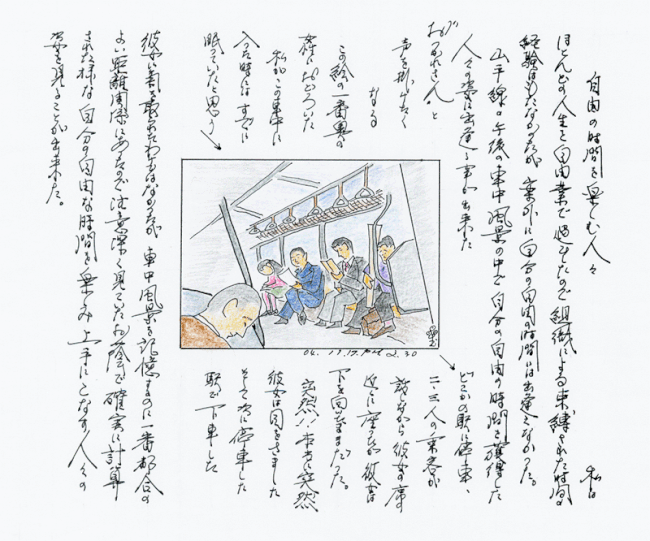 自由の時間を楽しむ人々 私は
ほとんどの人生を自由業で過ごしたので組織による束縛された時間を
経験はもたなかったが 案外に自分の自由の時間には出逢えなかった。
山手線の午後の車中風景の中で自分の自由の時間を獲得した
人々の姿に出逢う事が出来た
おつかれさん。と
声を掛けたく
なる
この絵の一番奥の
席に
私がこの車中に
入った時には すでに
眠っていたと思う
どこかの駅に停車、
二・三人の乗客が
話ながら彼女の席の
近くに座ったが彼女は
下を向いたままだった。
突然!! 本当に突然
彼女は目をさました
そして次に停車した
駅で下車した
04. 11.17. PM 2.30
彼女に わけではなかったが 車中風景を記憶するのに一番都合の
よい距離関係にあったので注意深く見ていたお蔭で確実に計算
された様な自分の自由な時間を楽しみ 上手にこなす人々の
姿を見ることが出来た。